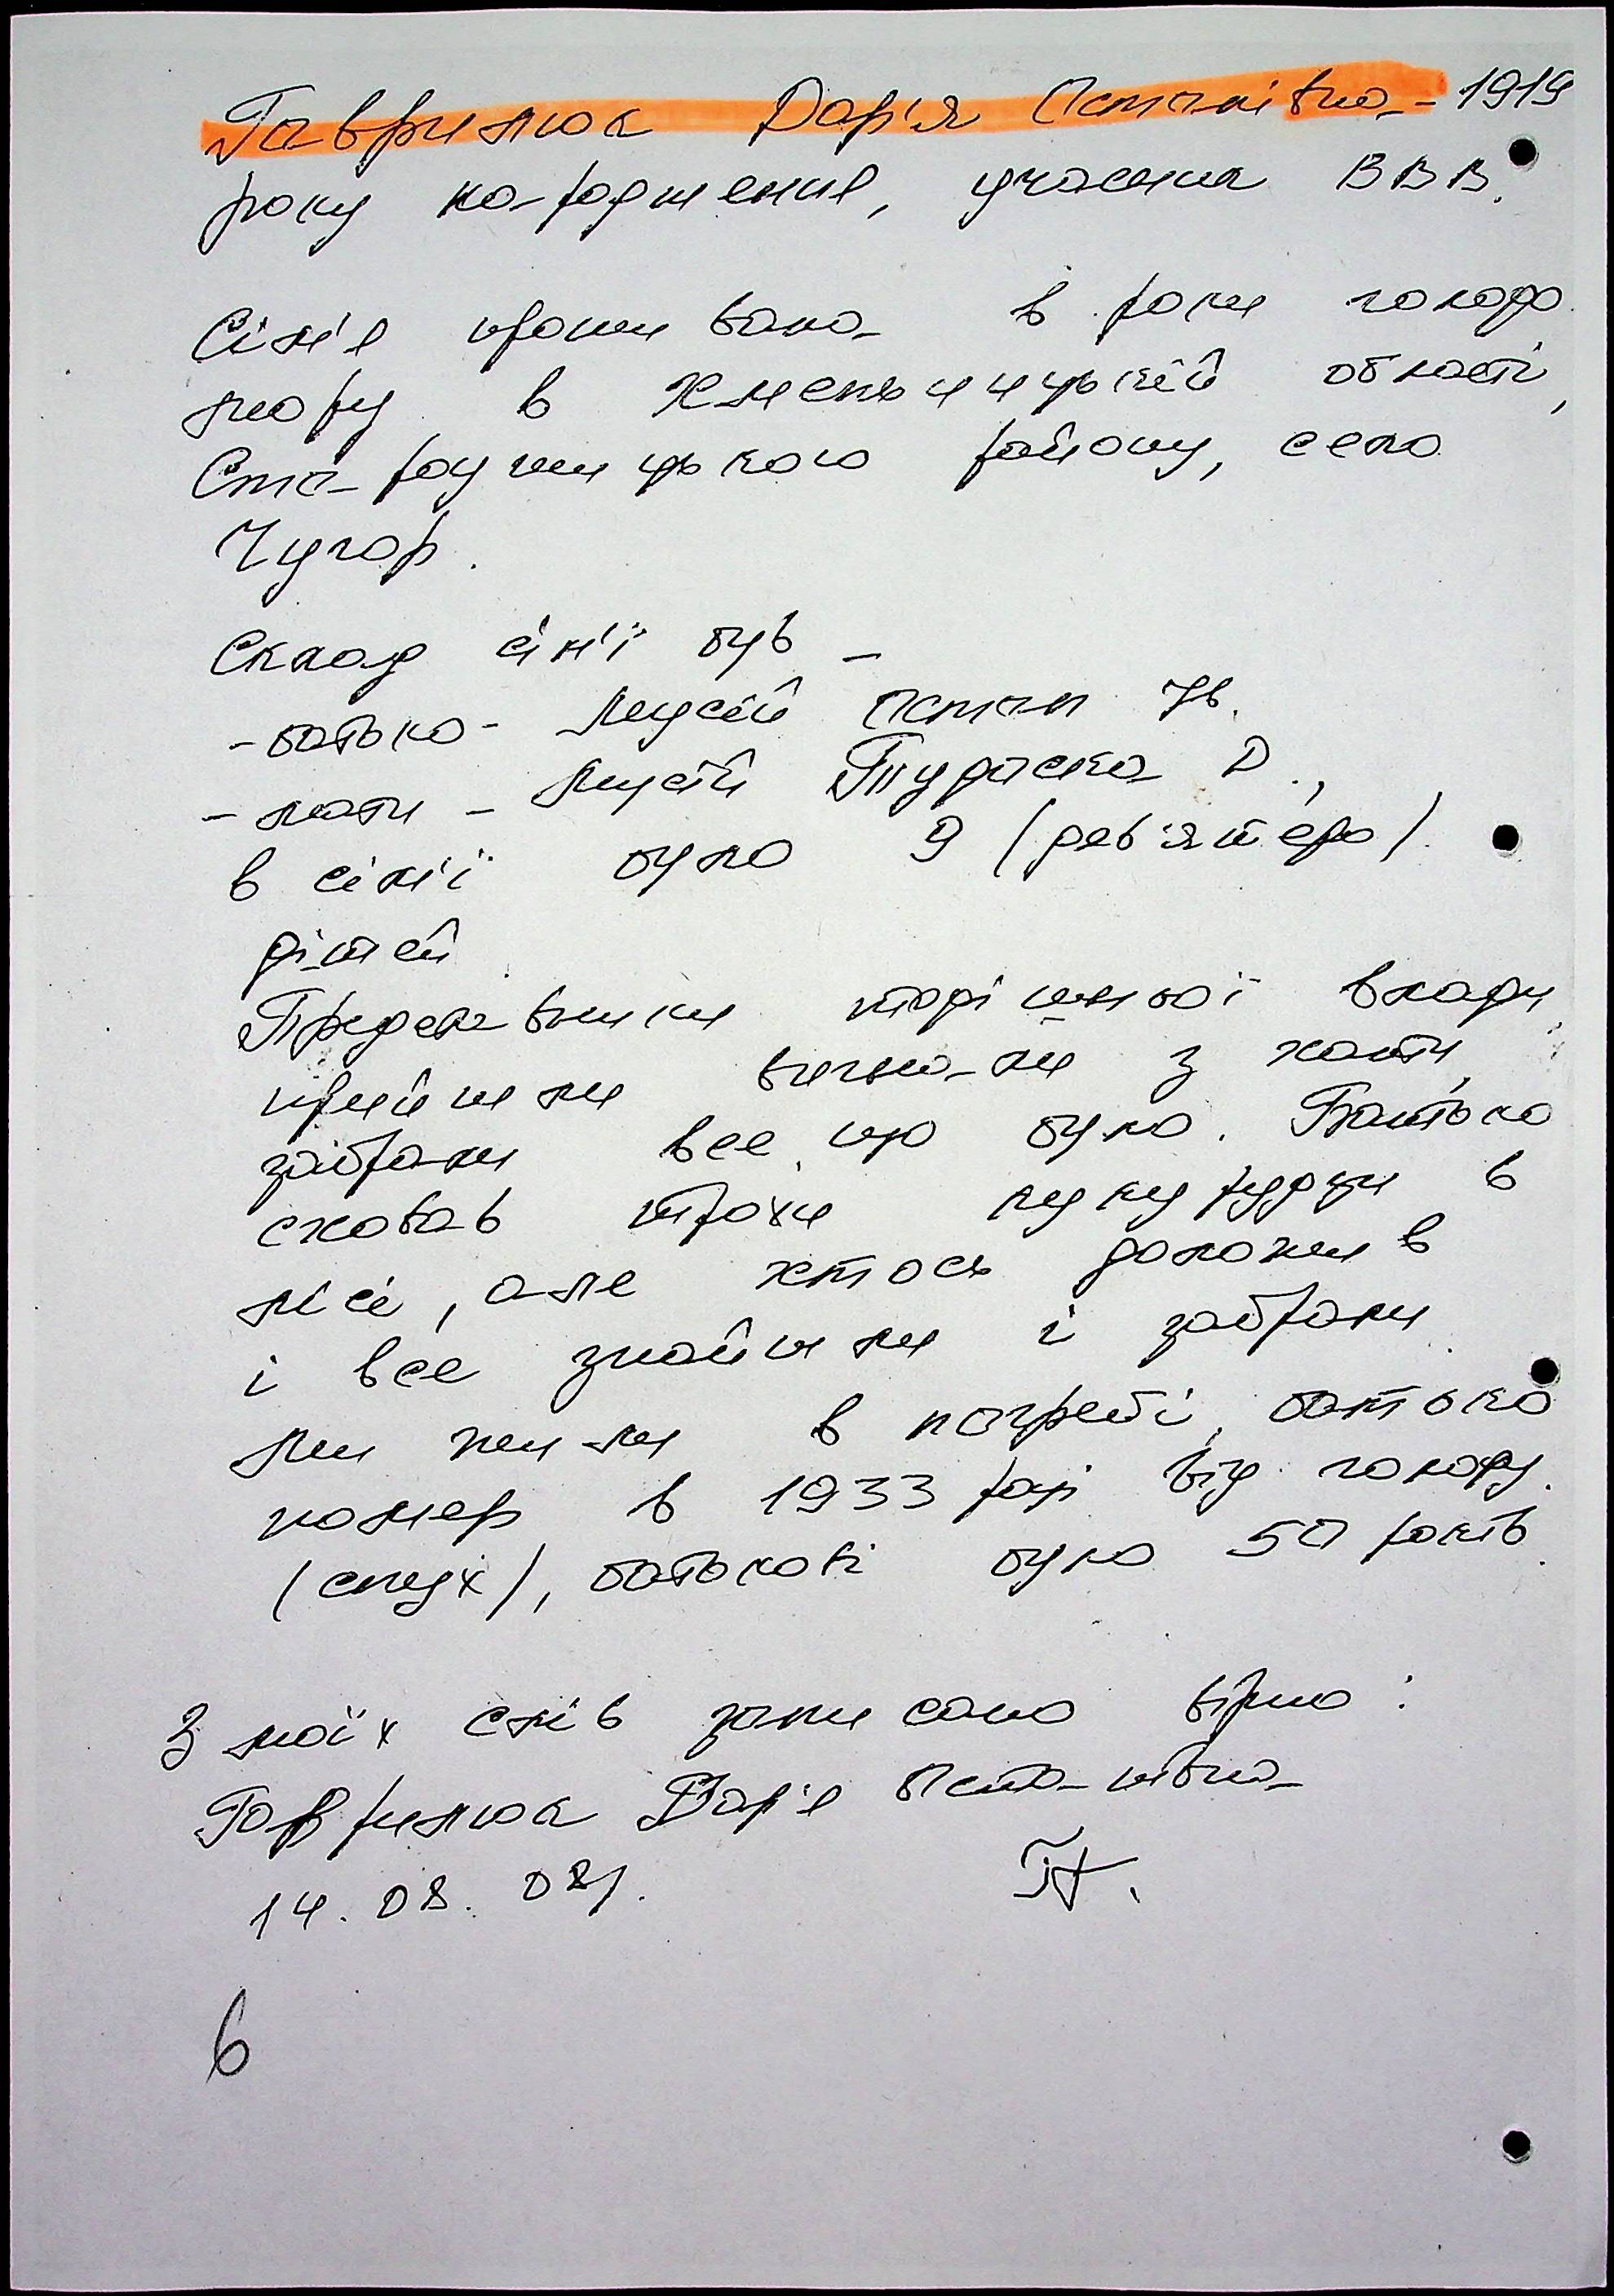 Гаврилюк Дар'я Остапівна - 1919
року народження, учасник ВВВ.
Сім'я проживала в роки голодо
мору в Хмельницькій області,
Старо ушицького району, село
Чугор.
Склад сім'ї був -
- батько - Мусій Остап Ів.
- мати - Мусій Тудоска Д.,
в сім'ї було 9 (дев'ятеро)
дітей
Представники тодішньої влади
прийшли вигнали з хати,
забрали все, що було. Батько
сховав трохи кукурудзи в
лісі, але хтось доложив
і все знайшли і забрали.
ми жили в погребі, батько
помер в 1933 році від голоду.
(спух), батькові було 50 років.
З моїх слів записано вірно:
Гаврилюк Дар'я Остапівна
14. 08. 08р.
6